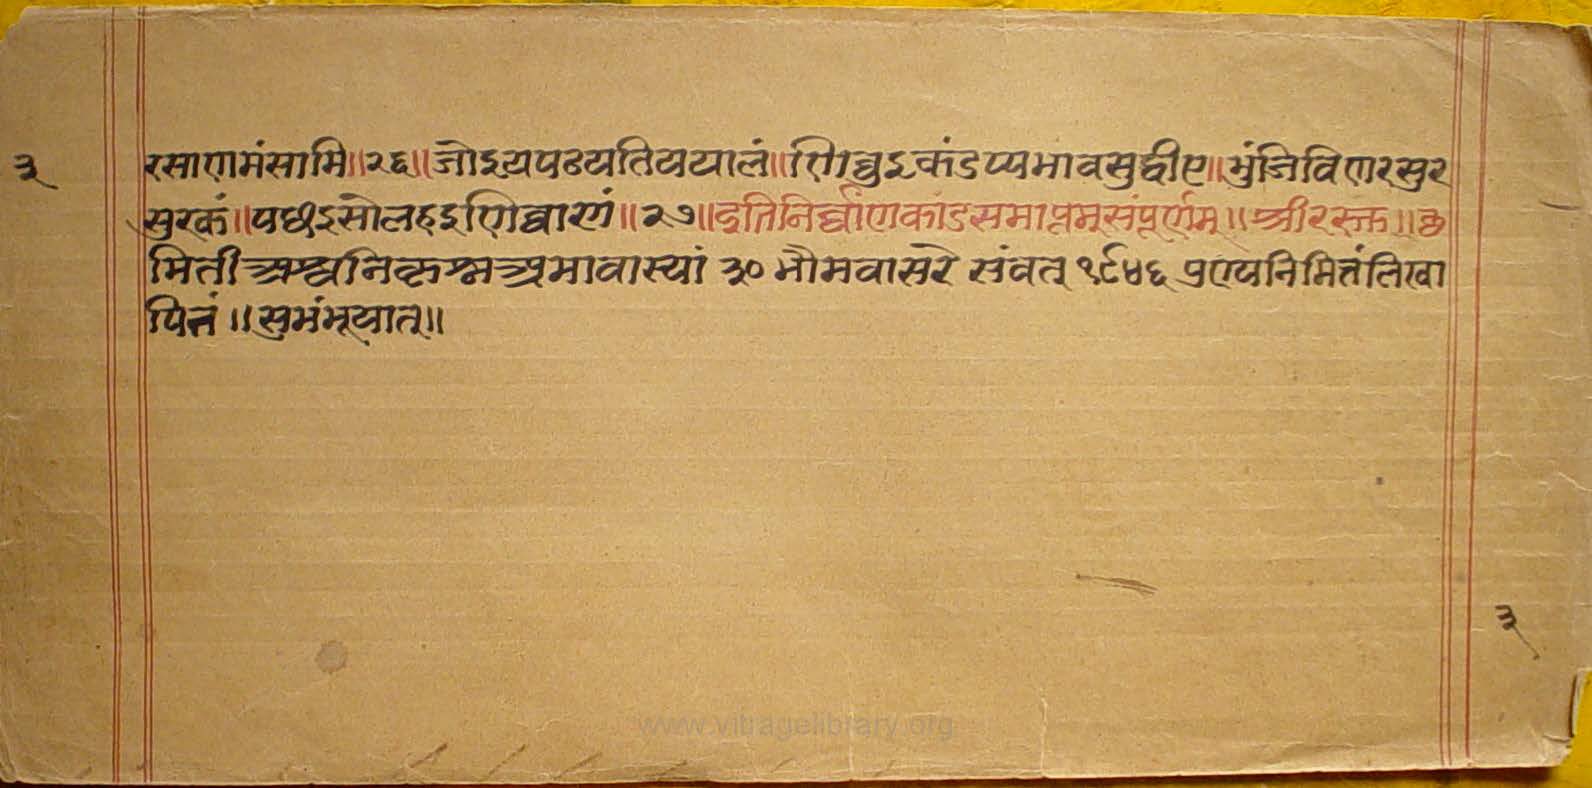 ३
रसाणमंसामि॥२६॥जोइयपठयतिययालं॥णिव्वुइकंडप्यभावसुद्वीए॥भुंजिविणरसुर
सुरकं॥पछीइसोलहइणिव्वाणं॥२७॥इतिनिर्व्वाणकांडसमाप्तम्संपूर्णम्॥श्रीरस्क्त॥
मिती अमावास्यां ३० भौमवासरे संवत् १९४६ निमित्तंलिखा
पितं॥सुभंभूयात्॥
३
www.vitragelibrary.org